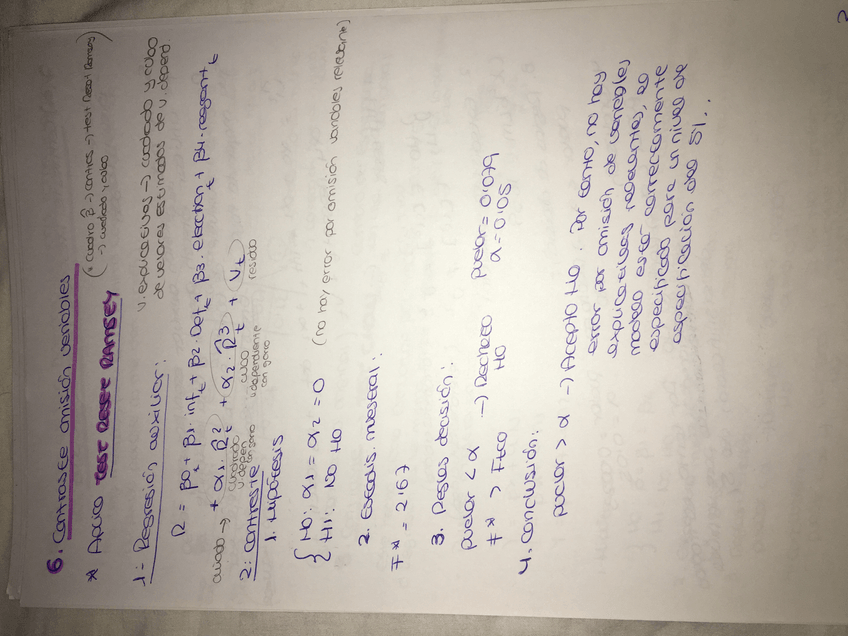 6. Contraste omisión variables
* Aplico TEST RESET RAMSEY (* cuadro β̂ → contras → test Reset Ramsey
→ cuadrado y cubo)
1- Regresión auxiliar: v. explicativas → cuadrado y cubo
de valores estimados de v. depend
R = β0 + β1·inf_t + β2·Def_t + β3·election_t + β4·reagan_t
cuidado → + α1·R̂²_t + α2·R̂³_t + U_t
cuadrado v. depen con gorro cubo v. dependiente con gorro residuo
2: contraste
1. Hipótesis
{ H0: α1 = α2 = 0 (no hay error por omisión variables relevante)
H1: No H0
2. Estadís. muestral:
F* = 2'67
3. Reglas decisión:
pvalor < α → Rechazo pvalor = 0'079
F* > Ftco H0 α = 0'05
4. Conclusión:
pvalor > α → Acepto H0. Por tanto, no hay
error por omisión de variables
explicativas relevantes, el
modelo está correctamente
especificado para un nivel de
especificación del 5%.
2